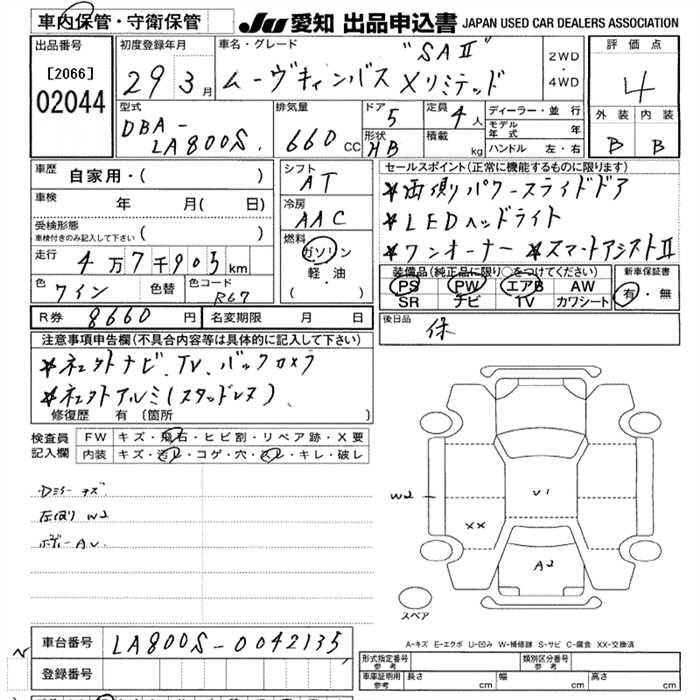 車内保管・守衛保管
JU 愛知 出品申込書 JAPAN USED CAR DEALERS ASSOCIATION
出品番号
[2066]
02044
初度登録年月
29 3月
車名・グレード
"SAⅡ"
ムーヴキャンバス Xリミテッド
2WD
・
4WD
評価点
4
外装 内装
B B
型式
DBA-
LA800S
排気量
660 CC
ドア 5
形状 HB
定員 4人
積載 kg
ディーラー・並 行
モデル年式 年
ハンドル 左・右
車歴 自家用・( )
車検 年 月( 日)
受検形態
車検付きのみ記入して下さい ( )
走行 4万7千905km
色 ワイン 色替 色コード R67
シフト AT
冷房 AAC
燃料
ガソリン
軽・油
( )
セールスポイント(正常に機能するものに限ります)
*両側パワースライドドア
*LEDヘッドライト
*ワンオーナー *スマートアシストⅡ
装備品(純正品に限り○をつけてください)
PS PW エアB AW
SR ナビ TV カワシート
新車保証書
有・無
R券 8660円 名変期限 月 日
後日品
保
注意事項申告欄(不具合内容等は具体的に記入して下さい)
*ネェクトナビ、TV、バックカメラ
*ネェクトアルミ(スタッドレス)、
修復歴 有 〔箇所 〕
検査員
記入欄
FW キズ・飛石・ヒビ割・リペア跡・X要
内装 キズ・汚レ・コゲ・穴・スレ・キレ・破レ
W2
V1
XX
A2
スペア
A-キズ E-エクボ U-凹み W-補修跡 S-サビ C-腐食 XX-交換済
車台番号 LA800S-0042135
登録番号
形式指定番号
参考
類別区分番号
参考
車庫証明用
参考
長さ cm 幅 cm 高さ cm